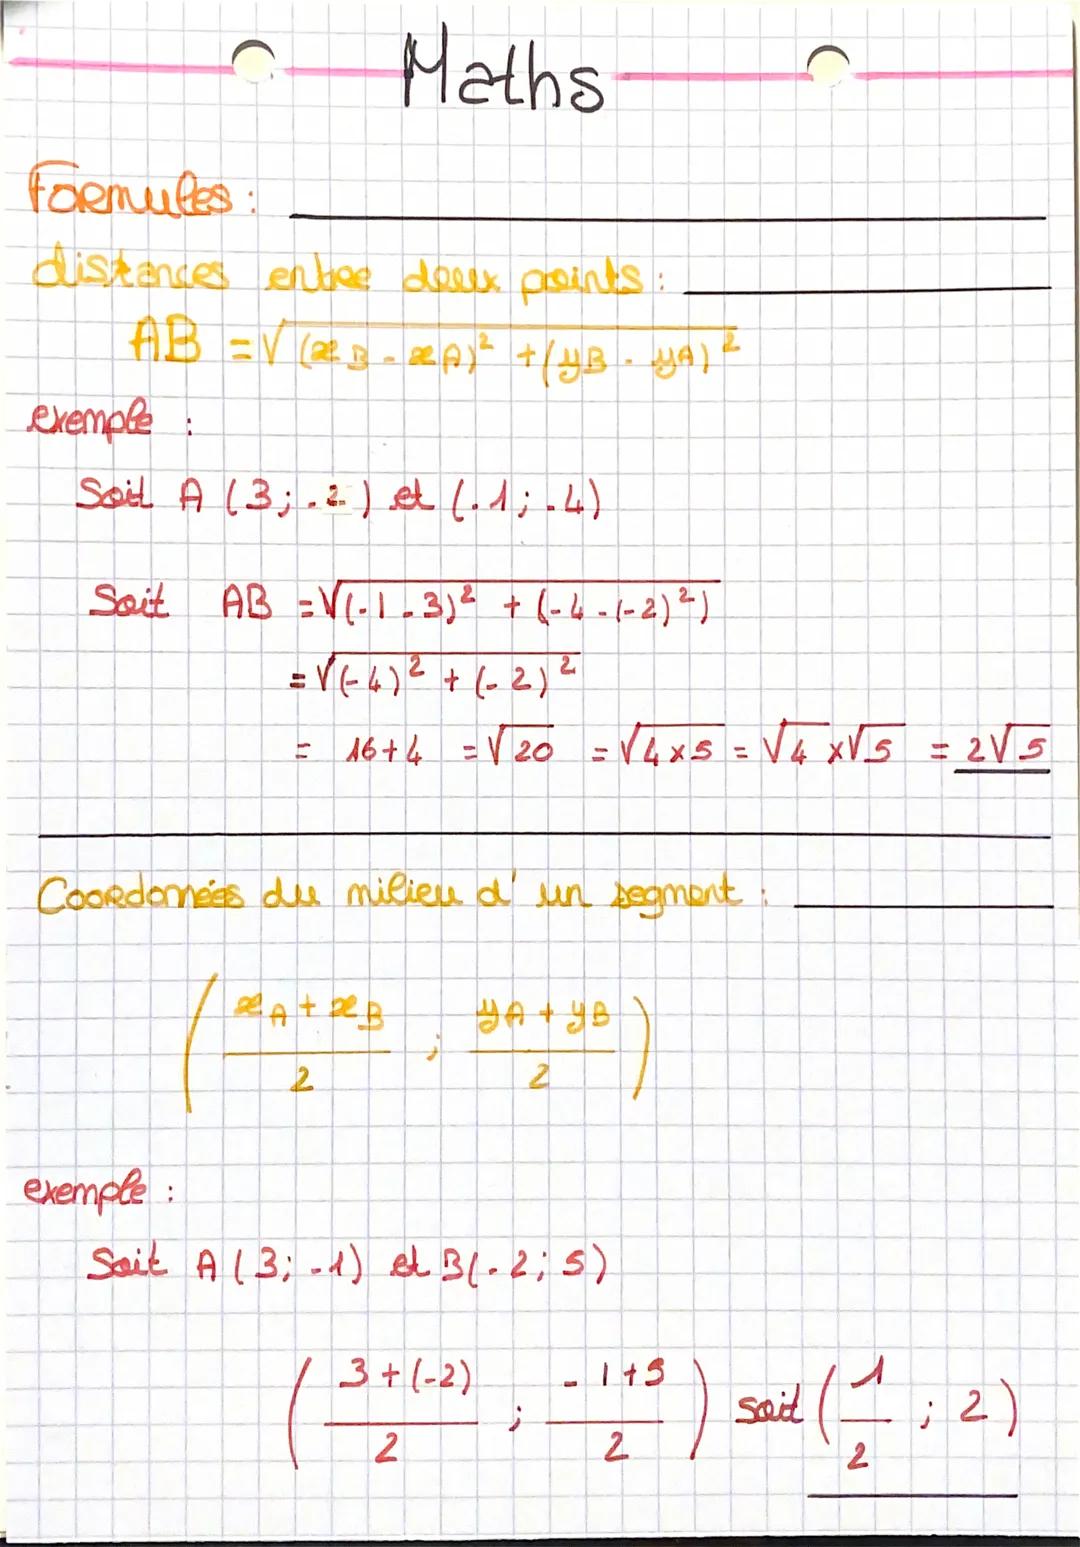 Maths
Formules :
distances entre deux points :
AB = √(xB - xA)² + (yB - yA)²
exemple :
Soit A (3; -2) et (-1; -4)
Soit AB = √(-1 - 3)² + (-4 - (-2)²)
= √(-4)² + (-2)²
= 16+4 = √20 = √4×5 = √4 ×√5 = 2√5
Coordonnées du milieu d'un segment :
( xA + xB / 2 ; yA + yB / 2 )
exemple :
Soit A (3; -1) et B(-2; 5)
( 3 + (-2) / 2 ; -1+5 / 2 ) soit ( 1 / 2 ; 2 )